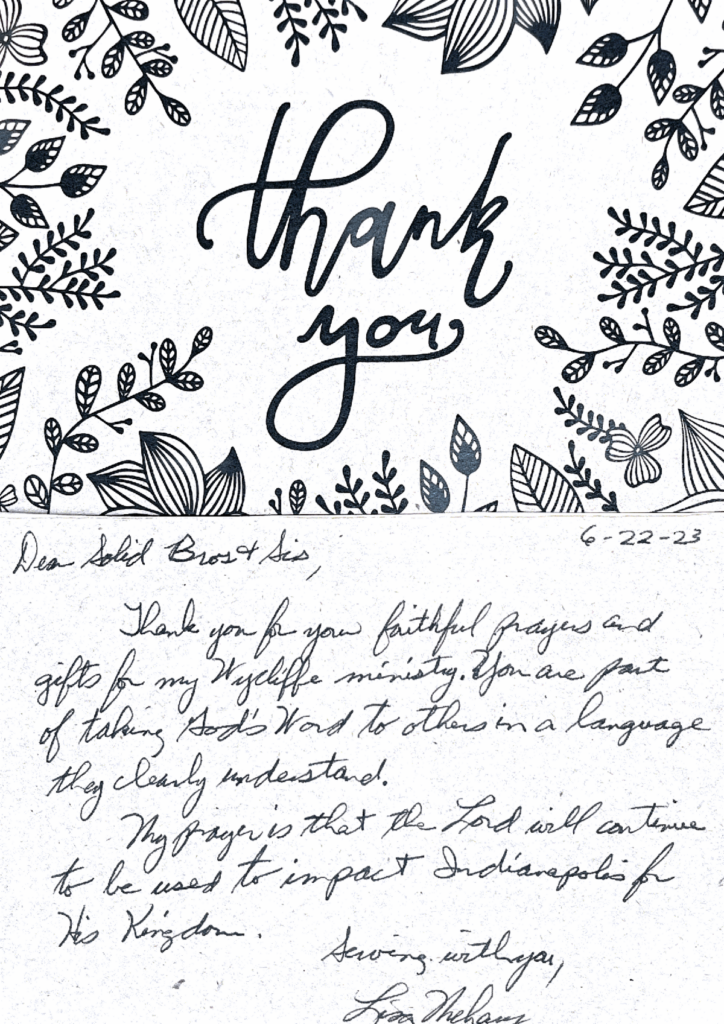 thank
you
6-22-23
Dear Solid Bros & Sis,
Thank you for your faithful prayers and
gifts for my Wycliffe ministry. You are part
of taking God's Word to others in a language
they clearly understand.
My prayer is that the Lord will continue
to be used to impact Indianapolis for
His Kingdom.
Serving with you,
Lisa